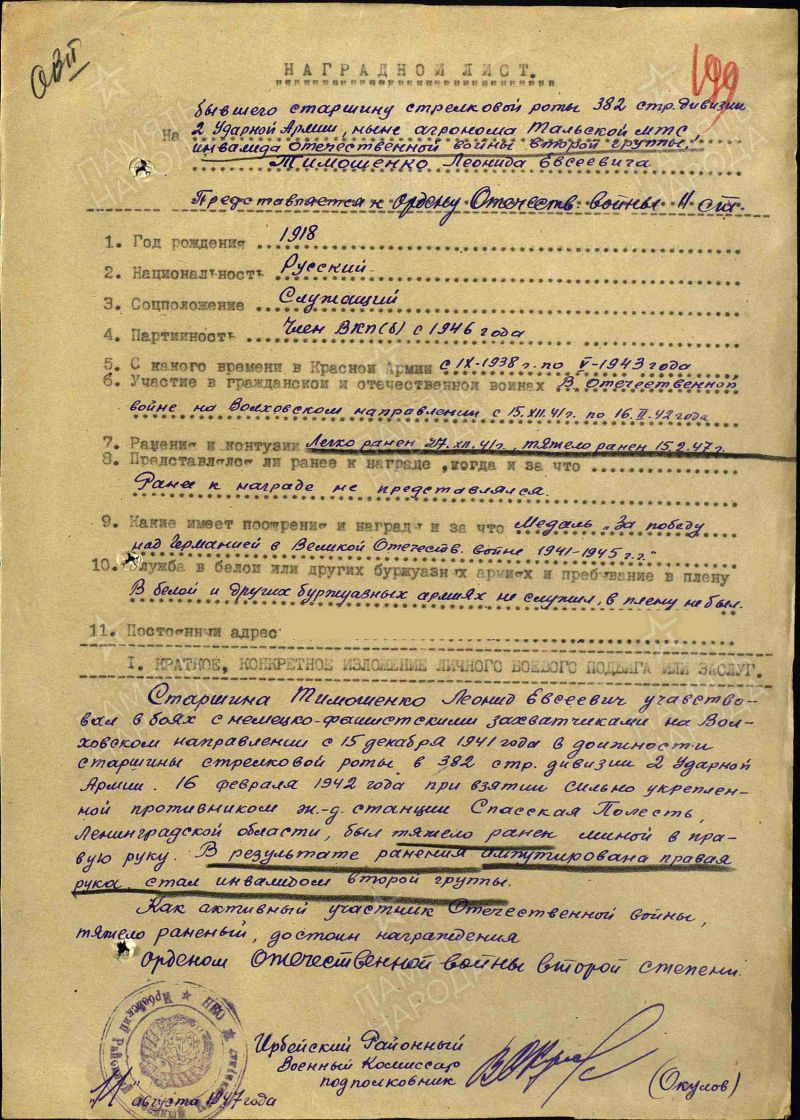 ОВII
199
НАГРАДНОЙ ЛИСТ.
бывшего старшину стрелковой роты 382 стр. дивизии
На 2 Ударной Армии, ныне агронома Тальской МТС
инвалида Отечественной войны второй группы,
Тимошенко Леонида Евсеевича
Представляется к ордену Отечеств. войны II ст.
1. Год рождения 1918
2. Национальность Русский
3. Соцположение Служащий
4. Партийность Член ВКП(б) с 1946 года
5. С какого времени в Красной Армии с IX-1938 г. по V-1943 года
6. Участие в гражданской и отечественной воинах В Отечественной
войне на Волховском направлении с 15.XII.41г. по 16.II.42 года
7. Ранения и контузии Легко ранен 27.XII.41г., тяжело ранен 15.2.47г.
8. Представлялся ли ранее к награде, когда и за что
Ранее к награде не представлялся.
9. Какие имеет поощрения и награды и за что Медаль „За победу
над Германией в Великой Отечеств. войне 1941-1945 г.г."
10. Служба в белой или других буржуазных армиях и пребывание в плену
В белой и других буржуазных армиях не служил, в плену не был.
11. Постоянный адрес
I. КРАТКОЕ, КОНКРЕТНОЕ ИЗЛОЖЕНИЕ ЛИЧНОГО БОЕВОГО ПОДВИГА ИЛИ ЗАСЛУГ.
Старшина Тимошенко Леонид Евсеевич учавство-
вал в боях с немецко-фашистскими захватчиками на Вол-
ховском направлении с 15 декабря 1941 года в должности
старшины стрелковой роты в 382 стр. дивизии 2 Ударной
Армии. 16 февраля 1942 года при взятии сильно укреплен-
ной противником ж.-д. станции Спасская Полесть,
Ленинградской области, был тяжело ранен миной в пра-
вую руку. В результате ранения ампутирована правая
рука, стал инвалидом второй группы.
Как активный участник Отечественной войны,
тяжело раненый, достоин награждения
орденом Отечественной войны второй степени.
Ирбейский Районный
Военный Комиссар
подполковник
(Окулов)
„11" августа 1947 года